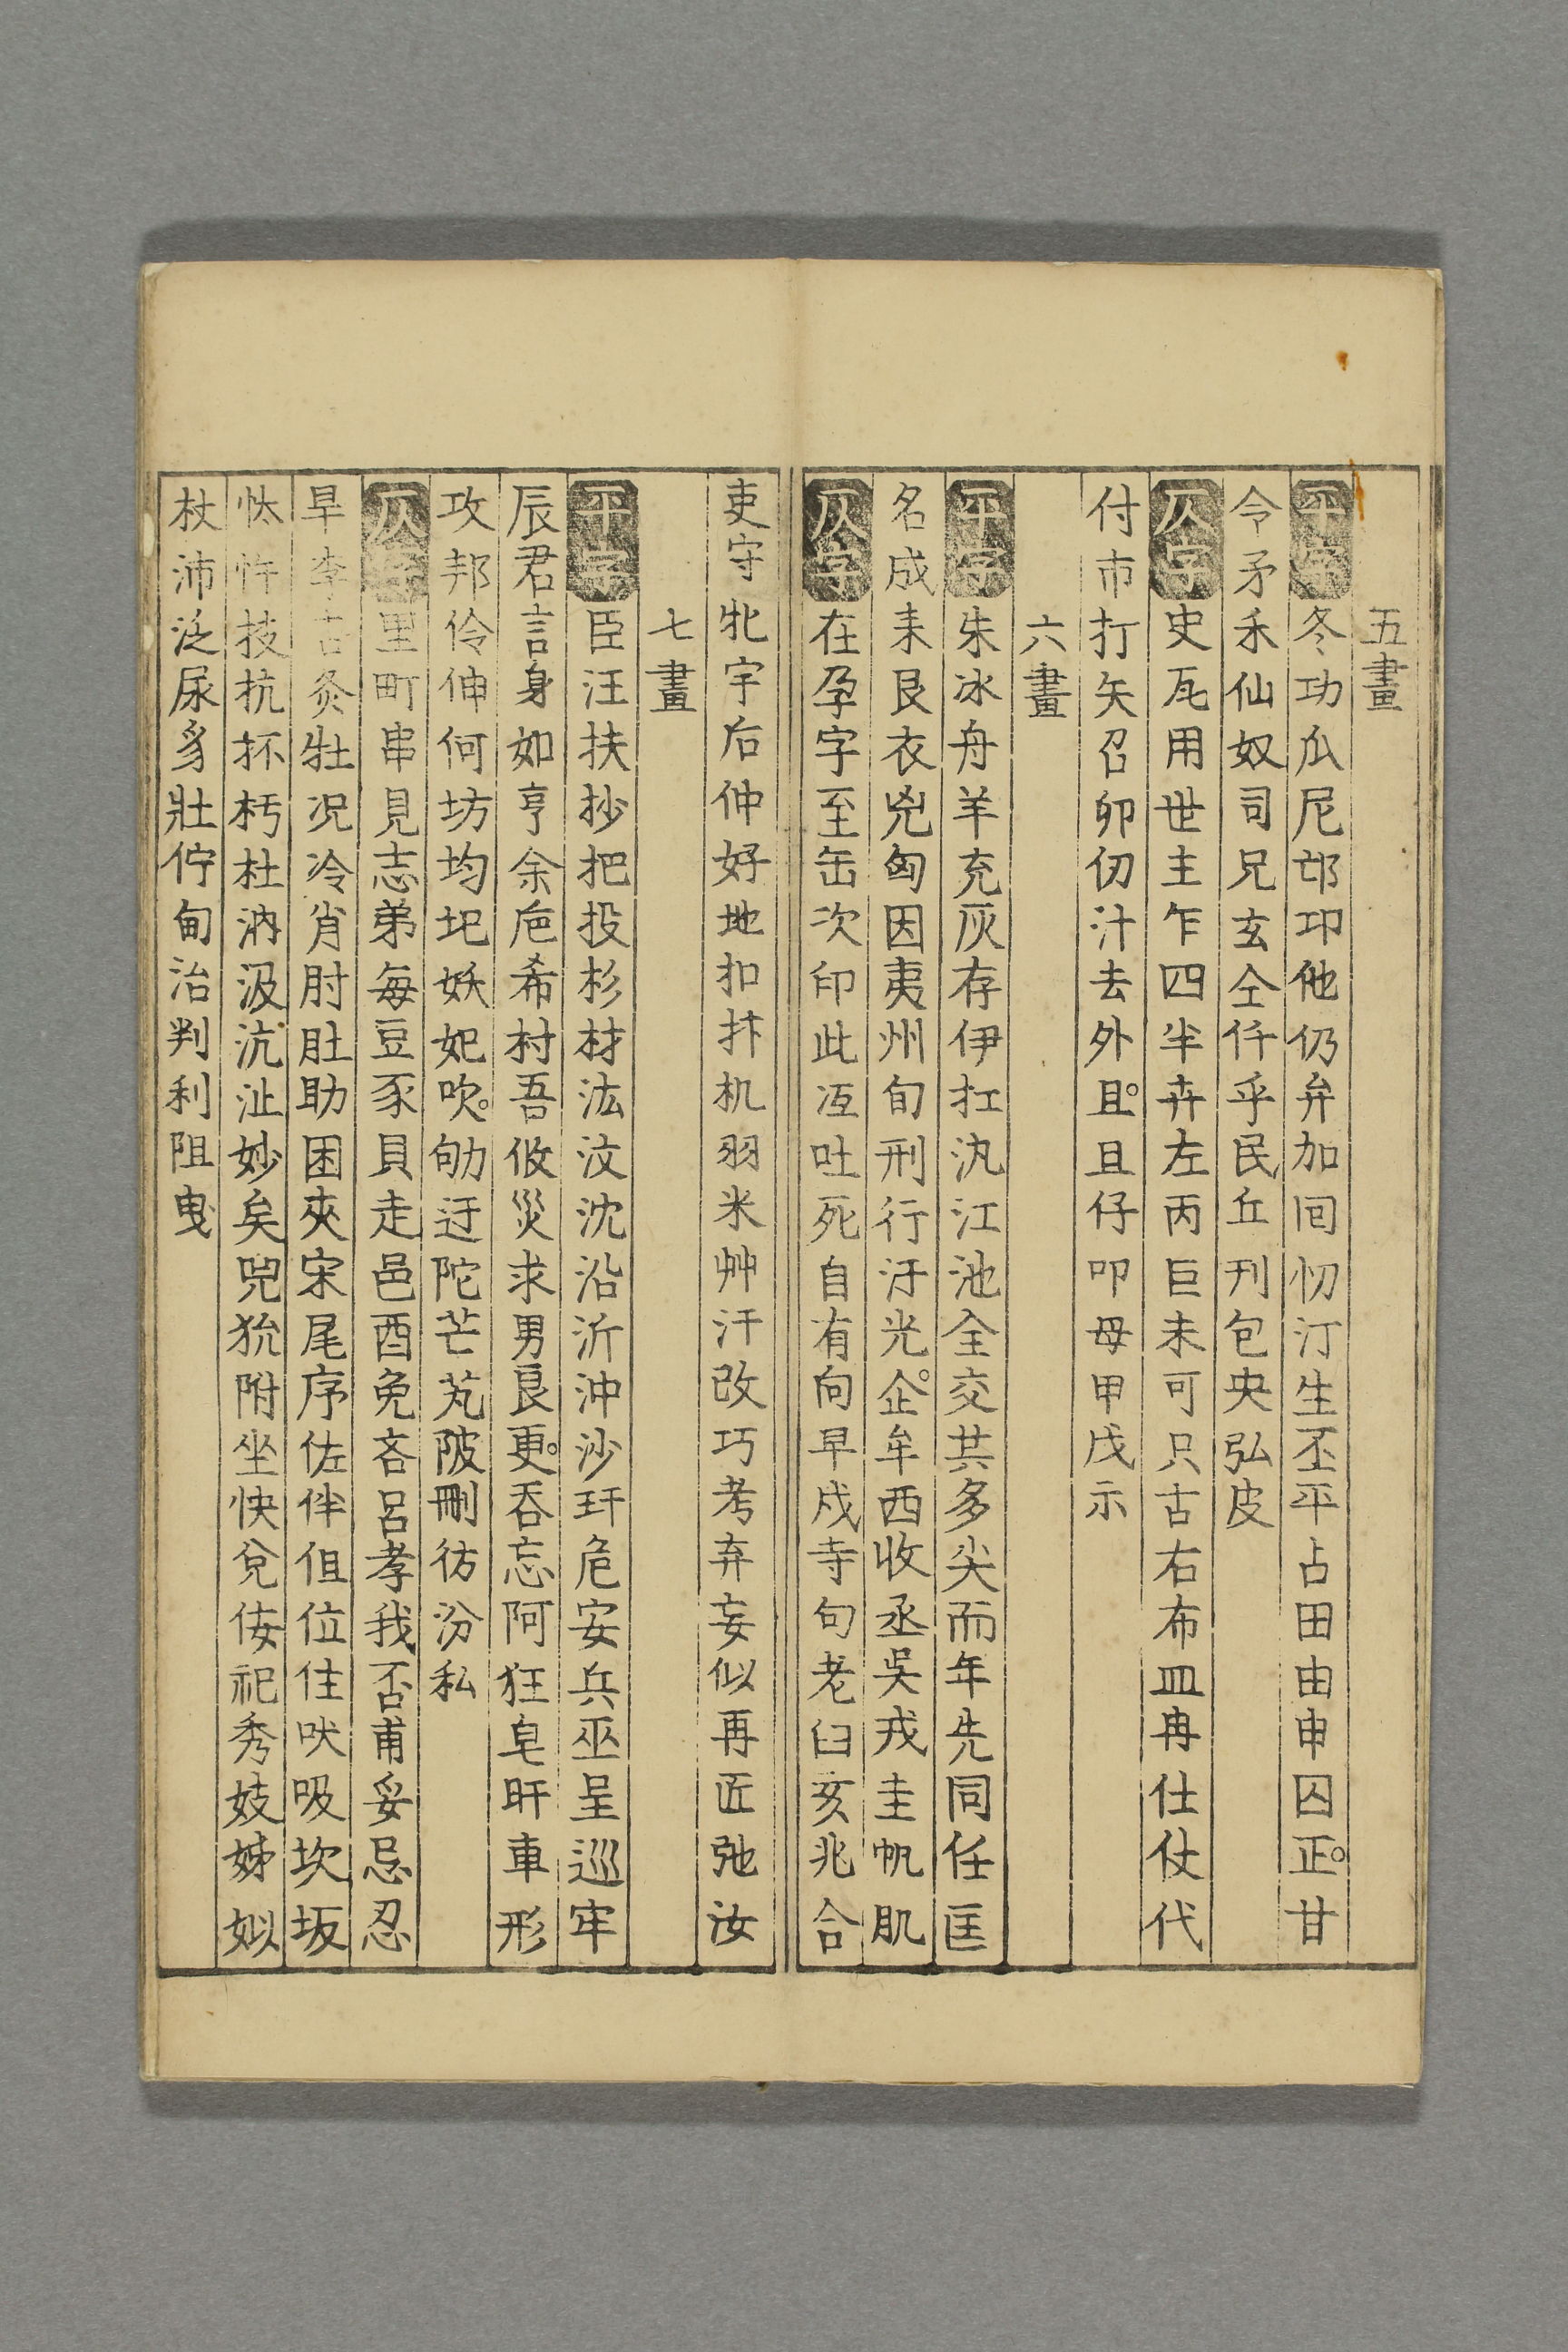 五畫
平字 冬功瓜尼邙邛他仍弁加囘忉汀生丕平占田由申囚正。甘
令矛禾仙奴司兄玄仝仟乎民丘刊包央弘皮
仄字 史瓦用世主乍四半卉左丙巨未可只古右布皿冉仕仗代
付市打矢召卯仞汁去外且。且仔叩母甲戊示
六畫
平字 朱冰舟羊充灰存伊扛汍江池全交共多尖而年先同任匡
名成耒艮衣兇匈因夷州旬刑行汙光。企牟西收丞吳戎圭帆肌
仄字 在孕字至缶次印此冱吐死自有向早戍寺句老臼亥兆合
吏守牝宇后仲好地扣抃机羽米艸汗改巧考弃妄似再匠弛汝
七畫
平字 臣汪扶抄把投杉材汯汶沈沿沂沖沙玕危安兵巫呈巡牢
辰君言身如亨余巵希村吾攸災求男良更。吞忘阿狂皂旰車形
攻邦伶伸何坊均圯妖妃吹。劬迂陀芒芃陂刪彷汾私
仄字 里町串見志弟每豆豕貝走邑酉免吝呂孝我否甫妥忌忍
旱李告灸牡况冷肖肘肚助困夾宋尾序佐伴伹位住吠吸坎坂
忕忤技抗抔杇杜汭汲沆沚妙矣兕狁附坐快兌侒祀秀妓姊姒
杖沛泛尿豸壯佇甸治判利阻曳